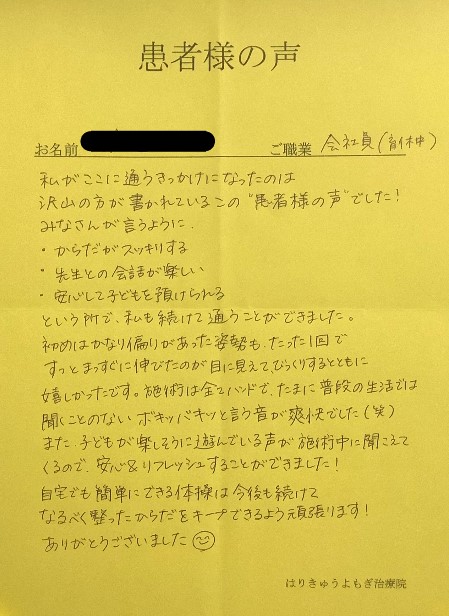 患者様の声
お名前 ご職業 会社員(育休中)
私がここに通うきっかけになったのは
沢山の方が書かれているこの"患者様の声"でした!
みなさんが言うように、
・からだがスッキリする
・先生との会話が楽しい
・安心して子どもを預けられる
という所で、私も続けて通うことができました。
初めはかなり偏りがあった姿勢も、たった1回で
すっとまっすぐに伸びたのが目に見えてびっくりするとともに
嬉しかったです。施術は全てハンドで、たまに普段の生活では
聞くことのない ボキッバキッと言う音が爽快でした(笑)
また、子どもが楽しそうに遊んでいる声が施術中に聞こえて
くるので、安心&リフレッシュすることができました!
自宅でも簡単にできる体操は今後も続けて
なるべく整ったからだをキープできるよう頑張ります!
ありがとうございました☺
はりきゅうよもぎ治療院